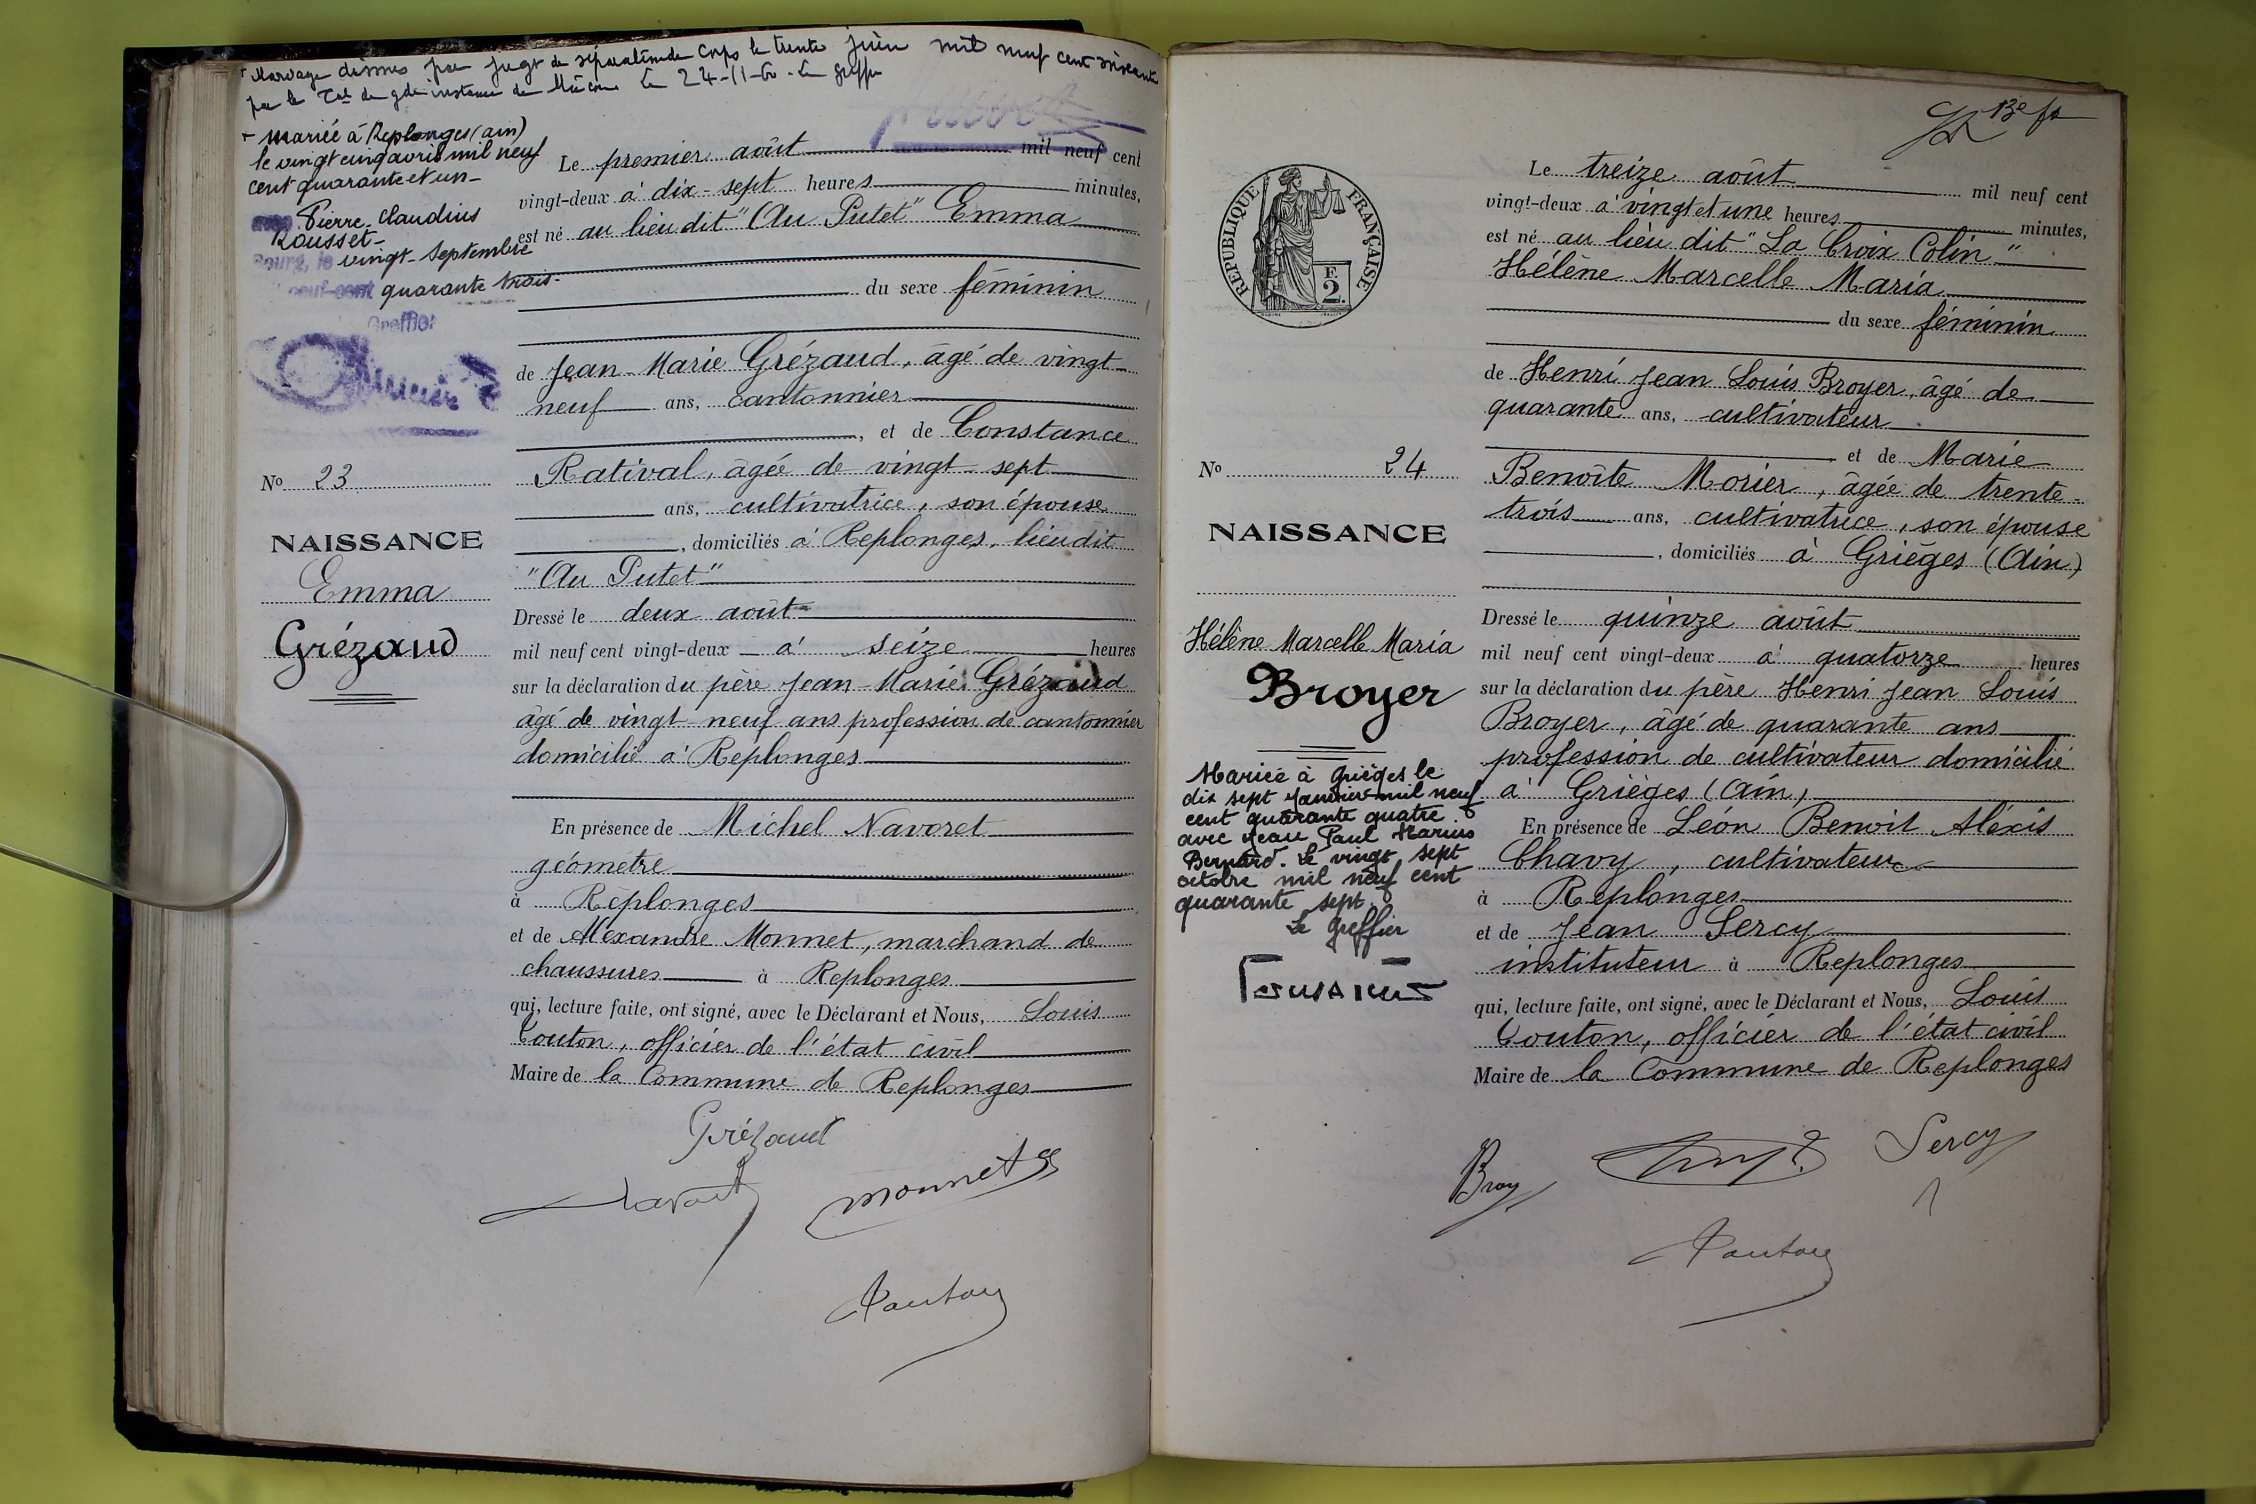 + Mariage dissous par jugt de séparation de corps le trente juin mil neuf cent soixante
par le Tal de gde instance de Mâcon le 24-11-60. Le greffier
+ mariée à Replonges (ain)
le vingt cinq avril mil neuf
cent quarante et un
avec Pierre Claudius
Rousset
Bourg, le vingt septembre
neuf cent quarante trois
Greffier
No 23
NAISSANCE
Emma
Grézaud
Le premier août mil neuf cent
vingt-deux à dix-sept heures minutes,
est né au lieu dit "Au Putet" Emma
du sexe féminin
de Jean-Marie Grézaud, âgé de vingt-
neuf ans, cantonnier
, et de Constance
Rativat, âgée de vingt-sept
ans, cultivatrice, son épouse
, domiciliés à Replonges, lieudit
"Au Putet"
Dressé le deux août
mil neuf cent vingt-deux à seize heures
sur la déclaration du père Jean-Marie Grézaud
âgé de vingt-neuf ans profession de cantonnier
domicilié à Replonges
En présence de Michel Navoret
géomètre
à Replonges
et de Aléxandre Monnet, marchand de
chaussures à Replonges
qui, lecture faite, ont signé, avec le Déclarant et Nous, Louis
Couton, officier de l'état civil
Maire de la Commune de Replonges
Grézaud
Navoret
Monnet
Couton
13e fo
RÉPUBLIQUE FRANÇAISE
F.
2
No 24
NAISSANCE
Hélène Marcelle Maria
Broyer
Mariée à Grièges le
dix sept Janvier mil neuf
cent quarante quatre
avec Jean Paul Marius
Bernard. Le vingt sept
octobre mil neuf cent
quarante sept.
Le Greffier
Le treize août mil neuf cent
vingt-deux à vingt et une heures minutes,
est né au lieu dit "La Croix Colin"
Hélène Marcelle Maria
du sexe féminin
de Henri Jean Louis Broyer, âgé de
quarante ans, cultivateur
et de Marie
Benoîte Morier, âgée de trente-
trois ans, cultivatrice, son épouse
, domiciliés à Grièges (Ain)
Dressé le quinze août
mil neuf cent vingt-deux à quatorze heures
sur la déclaration du père Henri Jean Louis
Broyer, âgé de quarante ans
profession de cultivateur domicilié
à Grièges (Ain)
En présence de Léon Benoit Aléxis
Chavy, cultivateur
à Replonges
et de Jean Sercy
instituteur à Replonges
qui, lecture faite, ont signé, avec le Déclarant et Nous, Louis
Couton, officier de l'état civil
Maire de la Commune de Replonges
Broy
Sercy
Couton